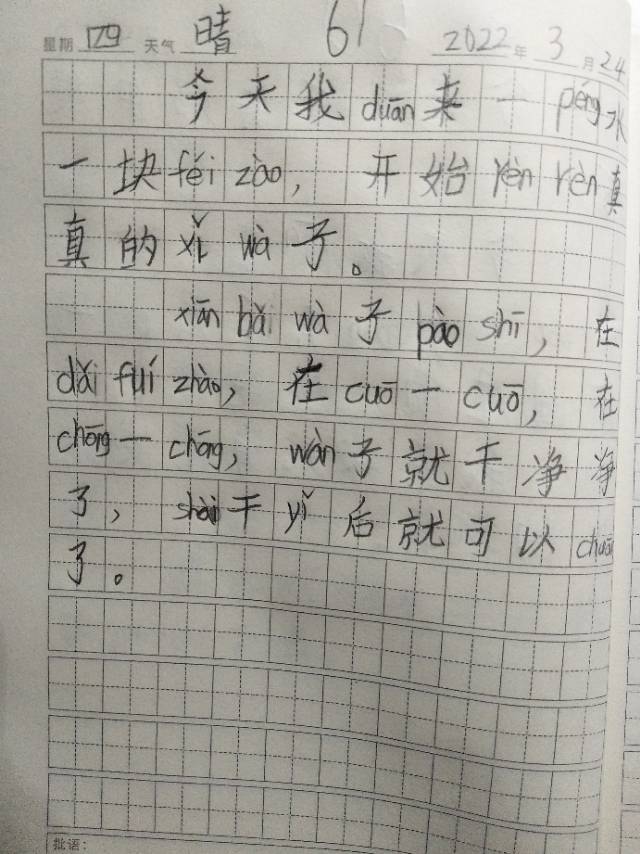 星期 四 天气 晴 61 2022年 3月24
今天我duān来一péng水
一块féi zào，开始rèn rèn真
真的xǐ wà子。
xiān bǎ wà子pào shī，在
dǎ fuí zhào，在cuō一cuō，在
chōng一chōng，wàn子就干净净
了，shài干yǐ后就可以chuān
了。
批语：